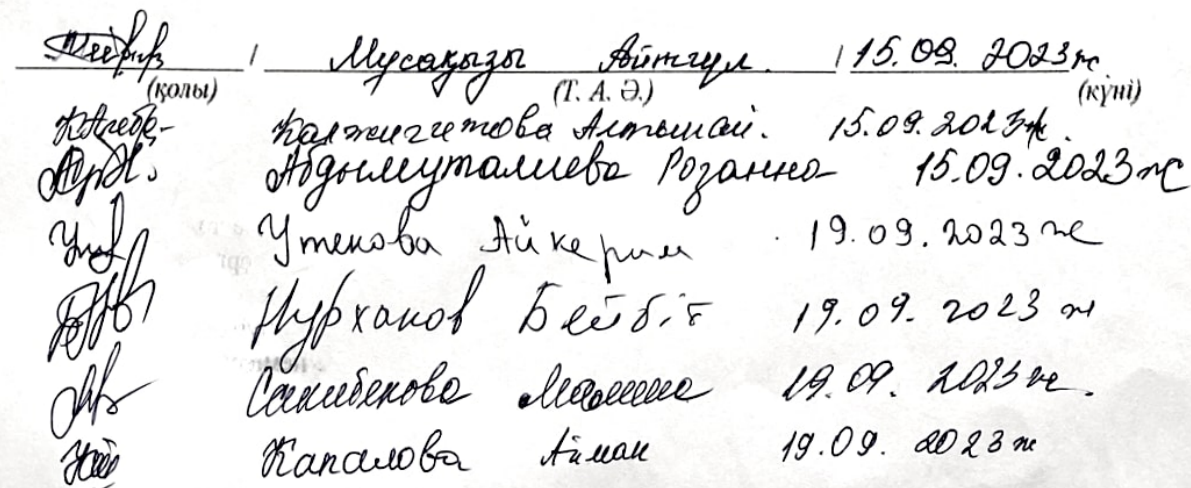 / Мусақызы Айтгүл. / 15.09. 2023ж.
(қолы) (Т. А. Ә.) (күні)
Калжигитова Алтынай. 15.09.2023ж.
Абдымуталиева Розанна 15.09.2023ж
Утенова Айкерим 19.09.2023 ж
Нурханов Бейбіт 19.09. 2023 ж
Сакибекова 19.09. 2023 ж.
Капалова Айман 19.09. 2023 ж